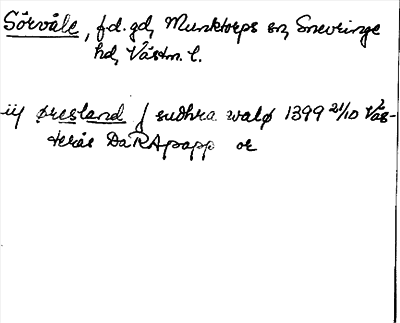 Sörvåle, f.d. gd, Munktorps sn, Snevringe
hd, Västm. l.
iij øresland j sudhra walø 1399 21/10 Väs-
terås DaRApapp or